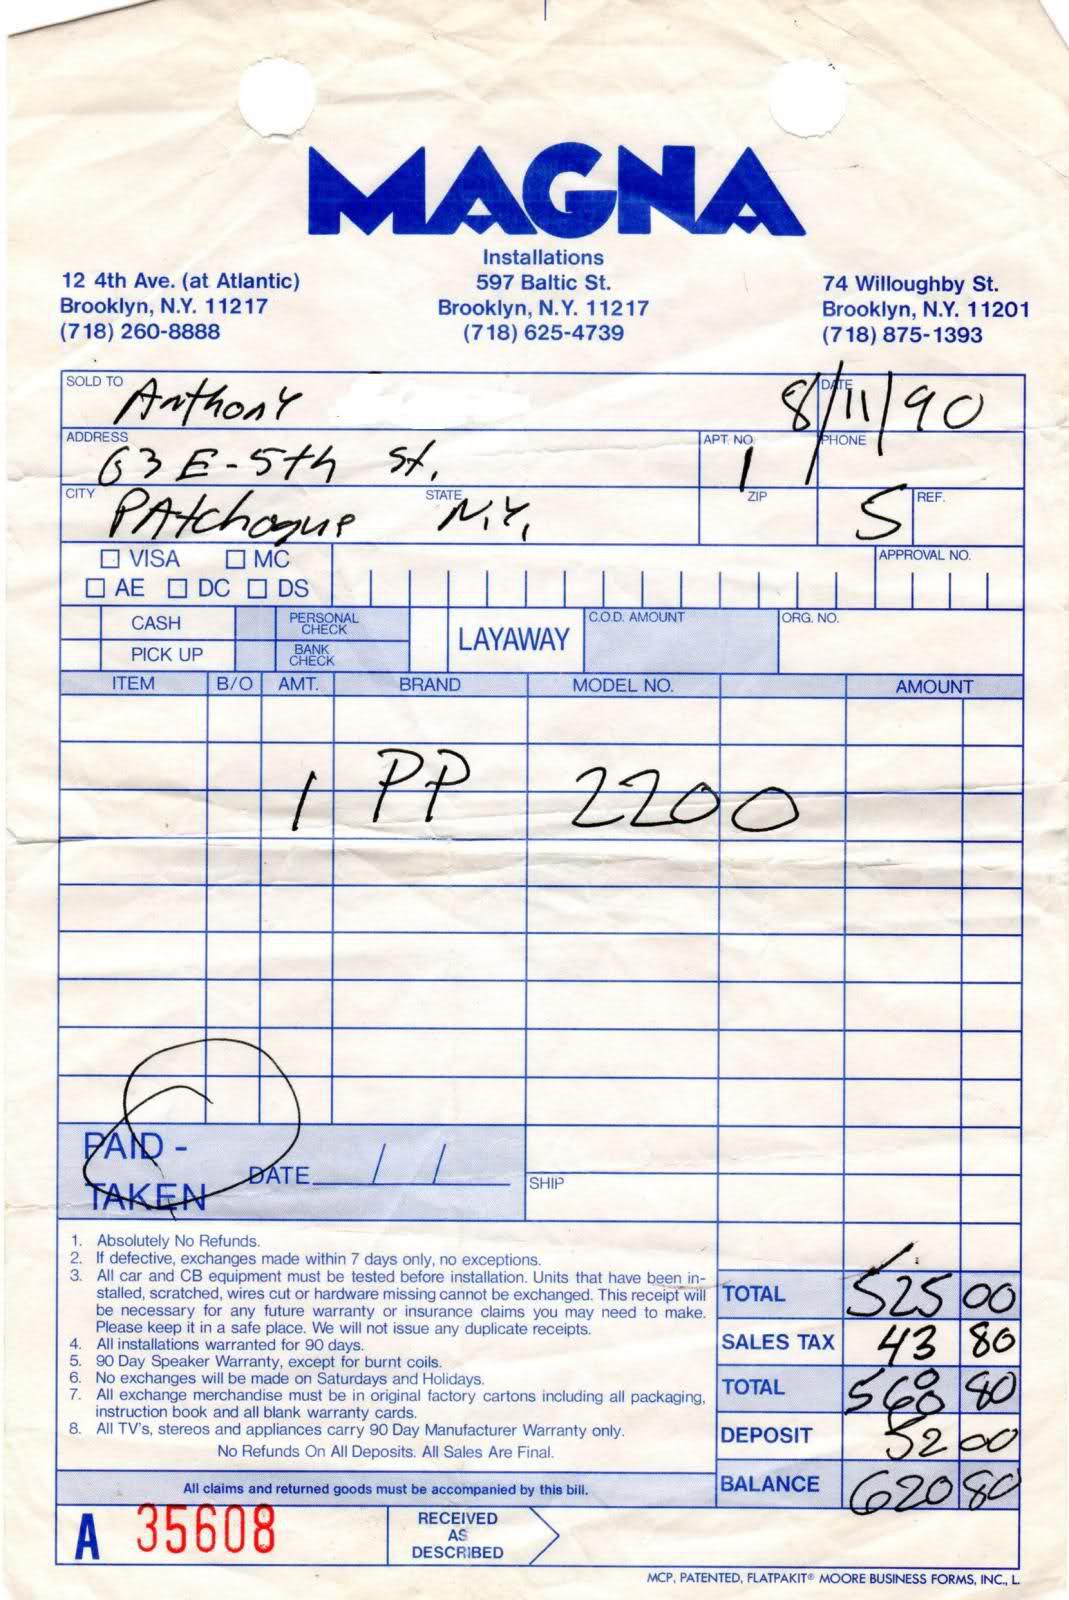 MAGNA
Installations
12 4th Ave. (at Atlantic)
Brooklyn, N.Y. 11217
(718) 260-8888
597 Baltic St.
Brooklyn, N.Y. 11217
(718) 625-4739
74 Willoughby St.
Brooklyn, N.Y. 11201
(718) 875-1393
SOLD TO Anthony DATE 8/11/90
ADDRESS 63 E-5th St. APT. NO. 1 PHONE
CITY PAtchogue STATE N.Y. ZIP S REF.
VISA MC APPROVAL NO.
AE DC DS
CASH PERSONAL CHECK LAYAWAY C.O.D. AMOUNT ORG. NO.
PICK UP BANK CHECK
ITEM B/O AMT. BRAND MODEL NO. AMOUNT
1 PP 2200
PAID - TAKEN DATE / /
SHIP
1. Absolutely No Refunds.
2. If defective, exchanges made within 7 days only, no exceptions.
3. All car and CB equipment must be tested before installation. Units that have been in-
stalled, scratched, wires cut or hardware missing cannot be exchanged. This receipt will
be necessary for any future warranty or insurance claims you may need to make.
Please keep it in a safe place. We will not issue any duplicate receipts.
4. All installations warranted for 90 days.
5. 90 Day Speaker Warranty, except for burnt coils.
6. No exchanges will be made on Saturdays and Holidays.
7. All exchange merchandise must be in original factory cartons including all packaging,
instruction book and all blank warranty cards.
8. All TV's, stereos and appliances carry 90 Day Manufacturer Warranty only.
No Refunds On All Deposits. All Sales Are Final.
All claims and returned goods must be accompanied by this bill.
TOTAL 525 00
SALES TAX 43 80
TOTAL 568 80
DEPOSIT 52 00
BALANCE 620 80
A 35608
RECEIVED
AS
DESCRIBED
MCP, PATENTED, FLATPAKIT® MOORE BUSINESS FORMS, INC., L